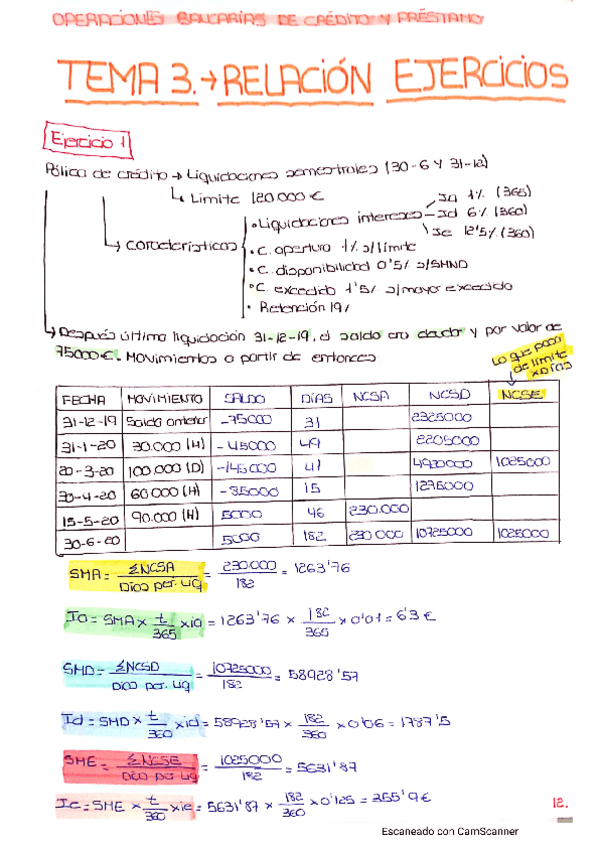 OPERACIONES BANCARIAS DE CRÉDITO Y PRÉSTAMO
TEMA 3.→RELACIÓN EJERCICIOS
Ejercicio 1
Póliza de crédito → Liquidaciones semestrales (30-6 y 31-12)
↳ Límite 120.000€
↳ Características
• Liquidaciones intereses
Ia 1% (365)
Id 6% (360)
Ie 12'5% (360)
• C. apertura 1% s/límite
• C. disponibilidad 0'5% s/SMND
• C. excedido 1'5% s/mayor excedido
• Retención 19%
↳ Después última liquidación 31-12-19, el saldo era deudor y por valor de
75000€. Movimientos a partir de entonces
Lo que paso
de límite
x días
FECHA MOVIMIENTO SALDO DÍAS NCSA NCSD NCSE
31-12-19 Saldo anterior -75000 31 2325000
31-1-20 30.000 (H) -45000 49 2205000
20-3-20 100.000 (D) -145000 41 4920000 1025000
30-4-20 60.000 (H) -85000 15 1275000
15-5-20 90.000 (H) 5000 46 230.000
30-6-20 5000 182 230000 10725000 1025000
SMA = ΣNCSA / Días per. liq = 230.000 / 182 = 1263'76
Ia = SMA x t/365 x ia = 1263'76 x 182/365 x 0'01 = 6'3€
SMD = ΣNCSD / Días per. liq = 10725000 / 182 = 58928'57
Id = SMD x t/360 x id = 58928'57 x 182/360 x 0'06 = 1787'5
SME = ΣNCSE / Días per liq = 1025000 / 182 = 5631'87
Ie = SME x t/360 x ie = 5631'87 x 182/360 x 0'125 = 355'9€
12.
Escaneado con CamScanner